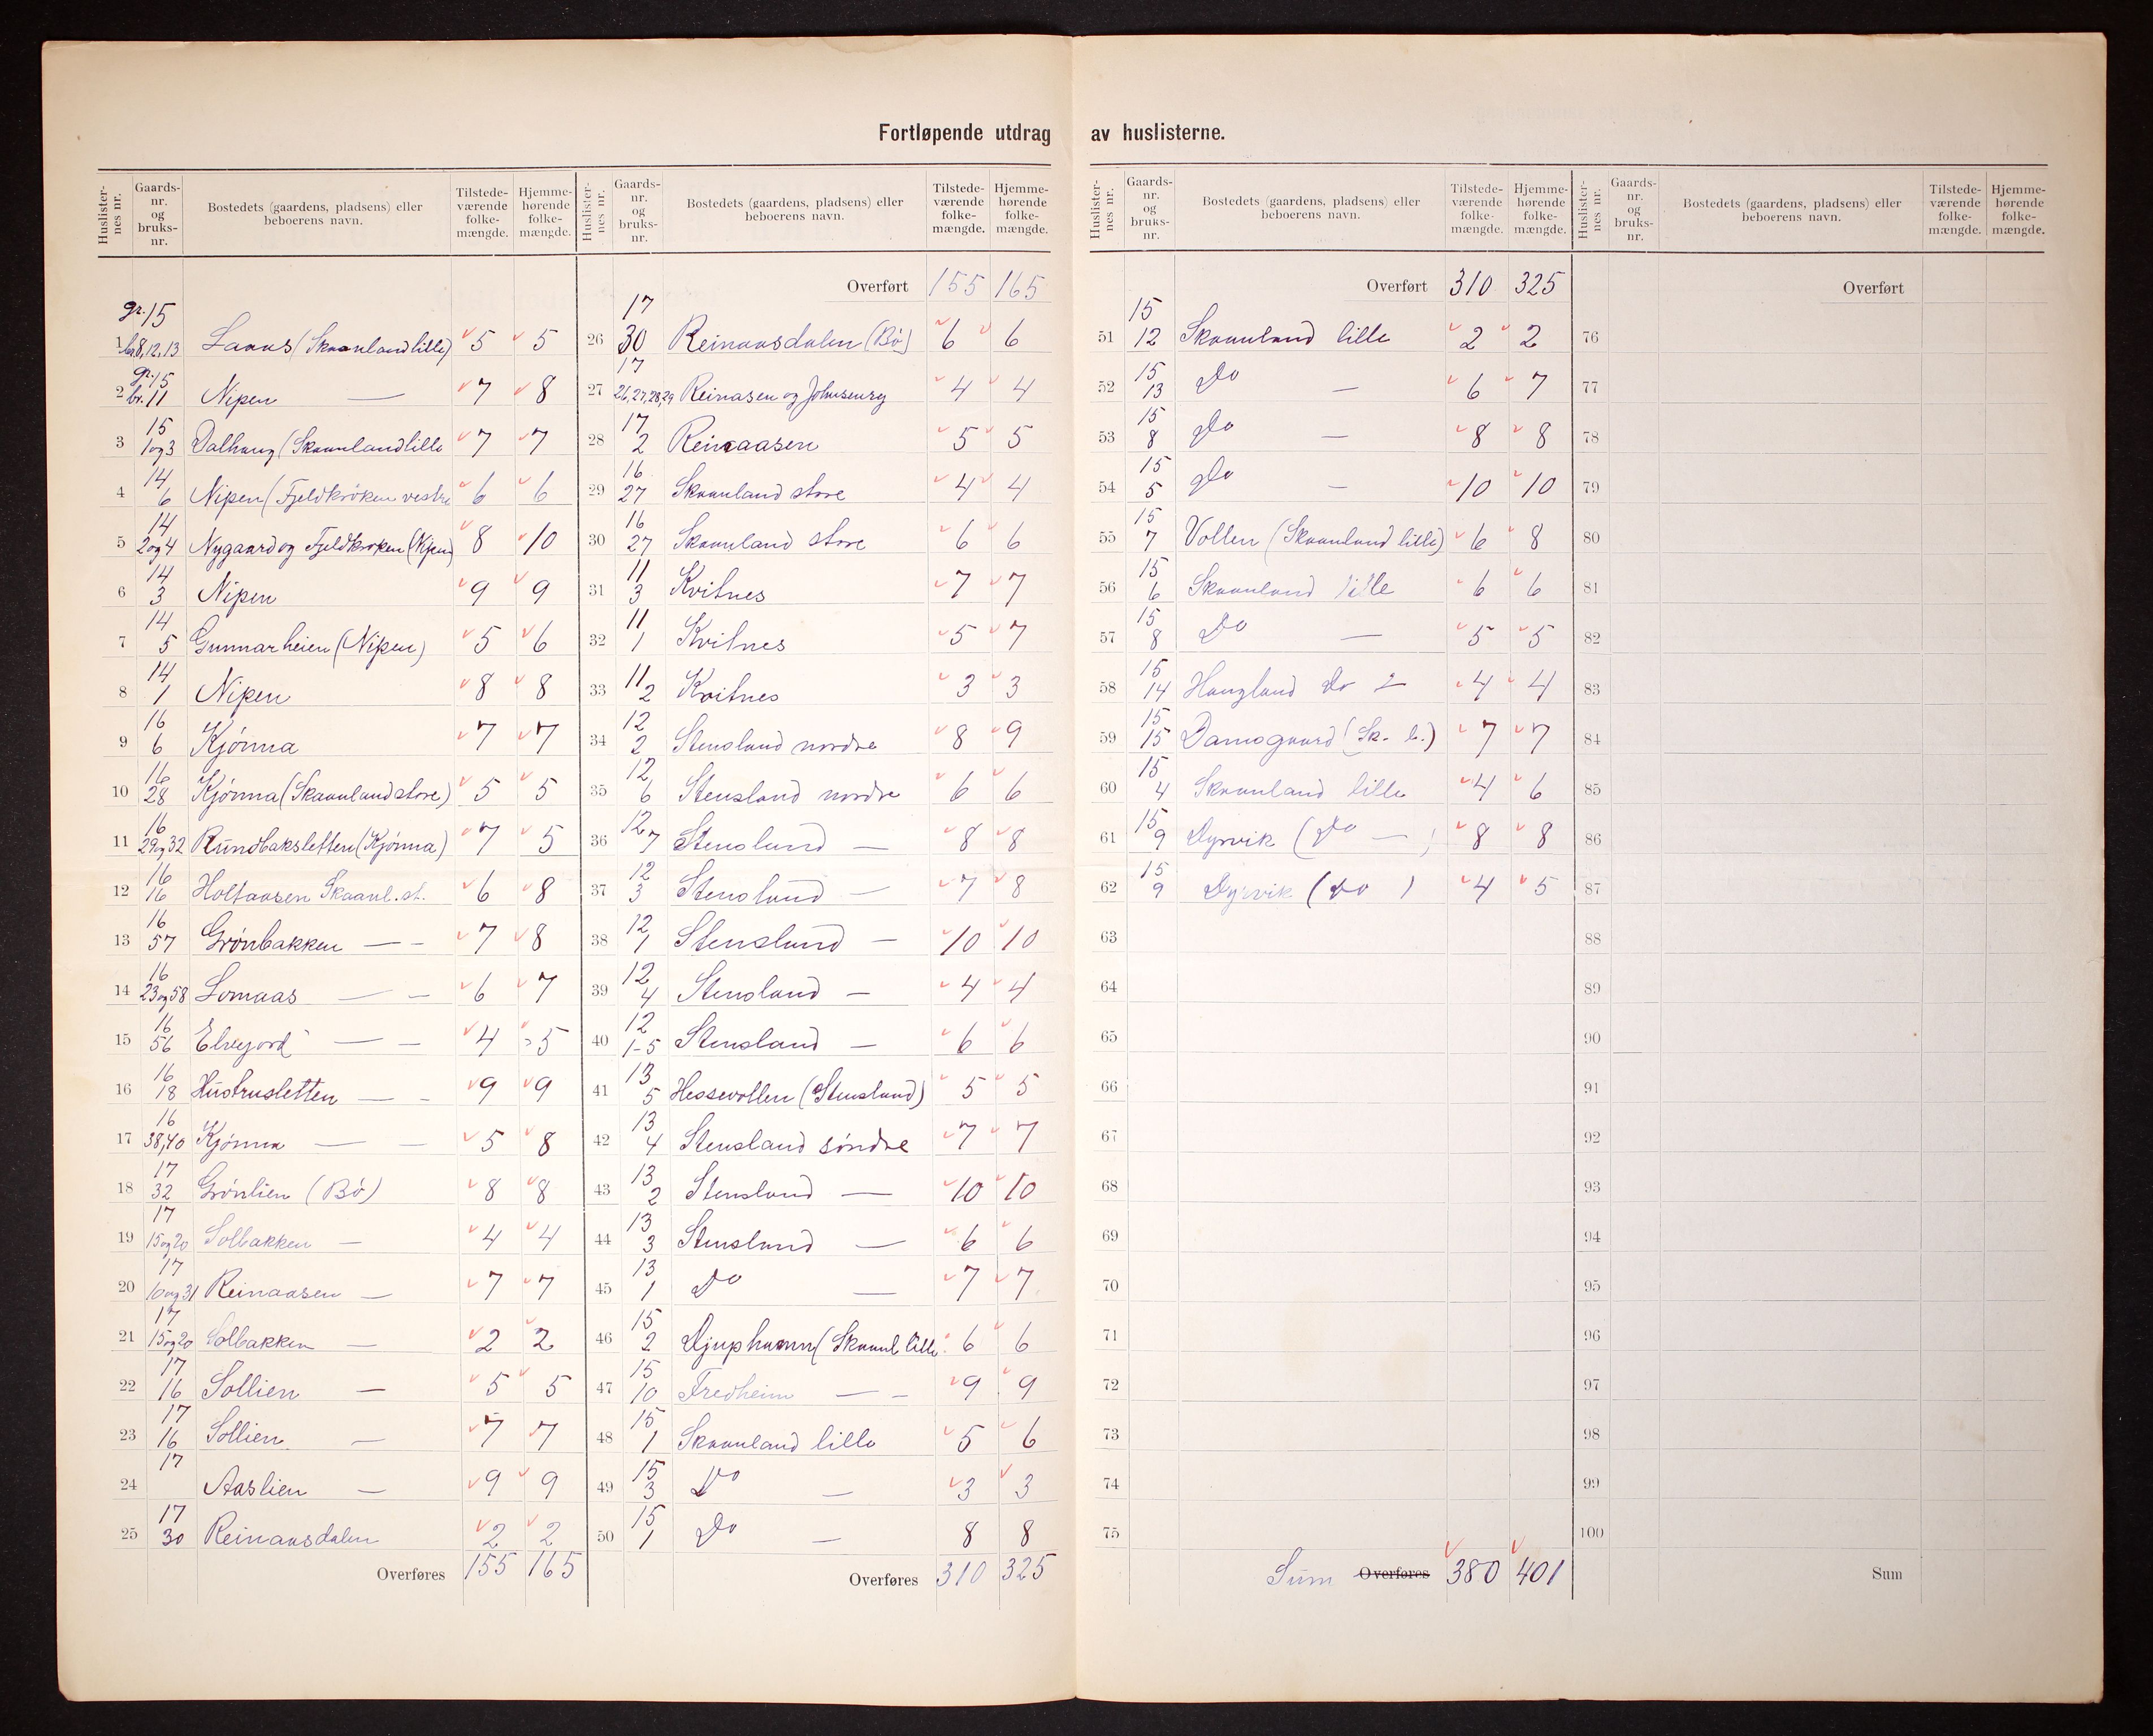 Fortløpende utdrag av huslisterne.
Huslisternes nr. Gaards-nr. og bruks-nr. Bostedets (gaardens, pladsens) eller beboerens navn. Tilstede-værende folke-mængde. Hjemme-hørende folke-mængde.
gr. 15
1 br. 8, 12, 13 Laaas (Skaanland lille) 5 5
gr. 15
2 br. 11 Nipen — 7 8
15
3 1 og 3 Dalhaug (Skaanland lille 7 7
14
4 6 Nipen (Fjeldkröken vestre 6 6
14
5 2 og 4 Nygaard og Fjeldkroken (Nipen) 8 10
14
6 3 Nipen 9 9
14
7 5 Gunnarheien (Nipen) 5 6
14
8 1 Nipen 8 8
16
9 6 Kjönna 7 7
16
10 28 Kjönna (Skaanland store) 5 5
16
11 29 og 32 Rundbaksletten (Kjönna) 7 5
16
12 16 Holtaasen Skaanl. st. 6 8
16
13 57 Grönbakken — — 7 8
16
14 23 og 58 Lomaas — — 6 7
16
15 56 Elvejord — — 4 5
16
16 18 Hustrusletten — — 9 9
16
17 38, 40 Kjönna — — 5 8
17
18 32 Grönlien (Bö) 8 8
17
19 15 og 20 Solbakken — 4 4
17
20 10 og 31 Reinaasen — 7 7
17
21 15 og 20 Solbakken — 2 2
17
22 16 Sollien — 5 5
17
23 16 Sollien — 7 7
17
24 Aaslien — 9 9
17
25 30 Reinaasdalen 2 2
Overføres 155 165
Huslisternes nr. Gaards-nr. og bruks-nr. Bostedets (gaardens, pladsens) eller beboerens navn. Tilstede-værende folke-mængde. Hjemme-hørende folke-mængde.
Overført 155 165
17
26 30 Reinaasdalen (Bö) 6 6
17
27 26, 27, 28, 29 Reinasen og Johnsenryg 4 4
17
28 2 Reinaasen 5 5
16
29 27 Skaanland store 4 4
16
30 27 Skaanland store 6 6
11
31 3 Kvitnes 7 7
11
32 1 Kvitnes 5 7
11
33 2 Kvitnes 3 3
12
34 2 Stensland nordre 8 9
12
35 6 Stensland nordre 6 6
12
36 7 Stensland — 8 8
12
37 3 Stensland — 7 8
12
38 1 Stensland — 10 10
12
39 4 Stensland — 4 4
12
40 1-5 Stensland — 6 6
13
41 5 Hessevollen (Stensland) 5 5
13
42 4 Stensland söndre 7 7
13
43 2 Stensland — 10 10
13
44 3 Stensland — 6 6
13
45 1 Do — 7 7
15
46 2 Djuphamn (Skaanl lille 6 6
15
47 10 Fredheim — — 9 9
15
48 1 Skaanland lille 5 6
15
49 3 Do — 3 3
15
50 1 Do — 8 8
Overføres 310 325
Huslisternes nr. Gaards-nr. og bruks-nr. Bostedets (gaardens, pladsens) eller beboerens navn. Tilstede-værende folke-mængde. Hjemme-hørende folke-mængde.
Overført 310 325
15
51 12 Skaanland lille 2 2
15
52 13 Do — 6 7
15
53 8 Do — 8 8
15
54 5 Do — 10 10
15
55 7 Vollen (Skaanland lille) 6 8
15
56 6 Skaanland lille 6 6
15
57 8 Do — 5 5
15
58 14 Haugland Do 4 4
15
59 15 Damsgaard (Sk. l.) 7 7
15
60 4 Skaanland lille 4 6
15
61 9 Dyrvik (Do — ) 8 8
15
62 9 Dyrvik (Do ) 4 5
63
64
65
66
67
68
69
70
71
72
73
74
75
Sum Overføres 380 401
Huslisternes nr. Gaards-nr. og bruks-nr. Bostedets (gaardens, pladsens) eller beboerens navn. Tilstede-værende folke-mængde. Hjemme-hørende folke-mængde.
Overført
76
77
78
79
80
81
82
83
84
85
86
87
88
89
90
91
92
93
94
95
96
97
98
99
100
Sum